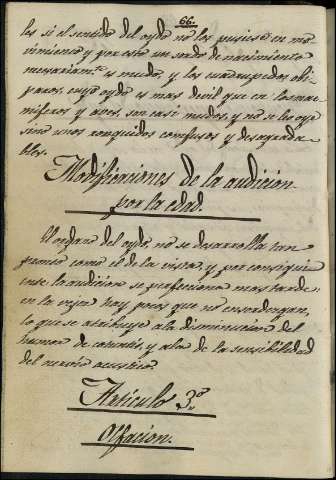 66.
les si el sentido del oydo no los pusiese en mo-
vimiento y por esto un sordo de nacimiento
necesariam.te es mudo, y los cuadrupedos, obi-
paros, cuyo oydo es mas devil que en los ma-
miferos y aves, son casi mudos, y no se les oye
sino unos ronquidos confusos y desagrada-
bles.
Modificaciones de la audicion
por la edad.
El organo del oydo, no se desarrolla tan
pronto como el de la vista, y por consigui-
ente la audicion se perfecciona mas tarde:
en la vejez hay pocos que no ensordezcan,
lo que se atribuye a la disminucion del
humor de cotunio, y a la de la sensibilidad
del nervio acustico.
Articulo 3.o
Olfacion.